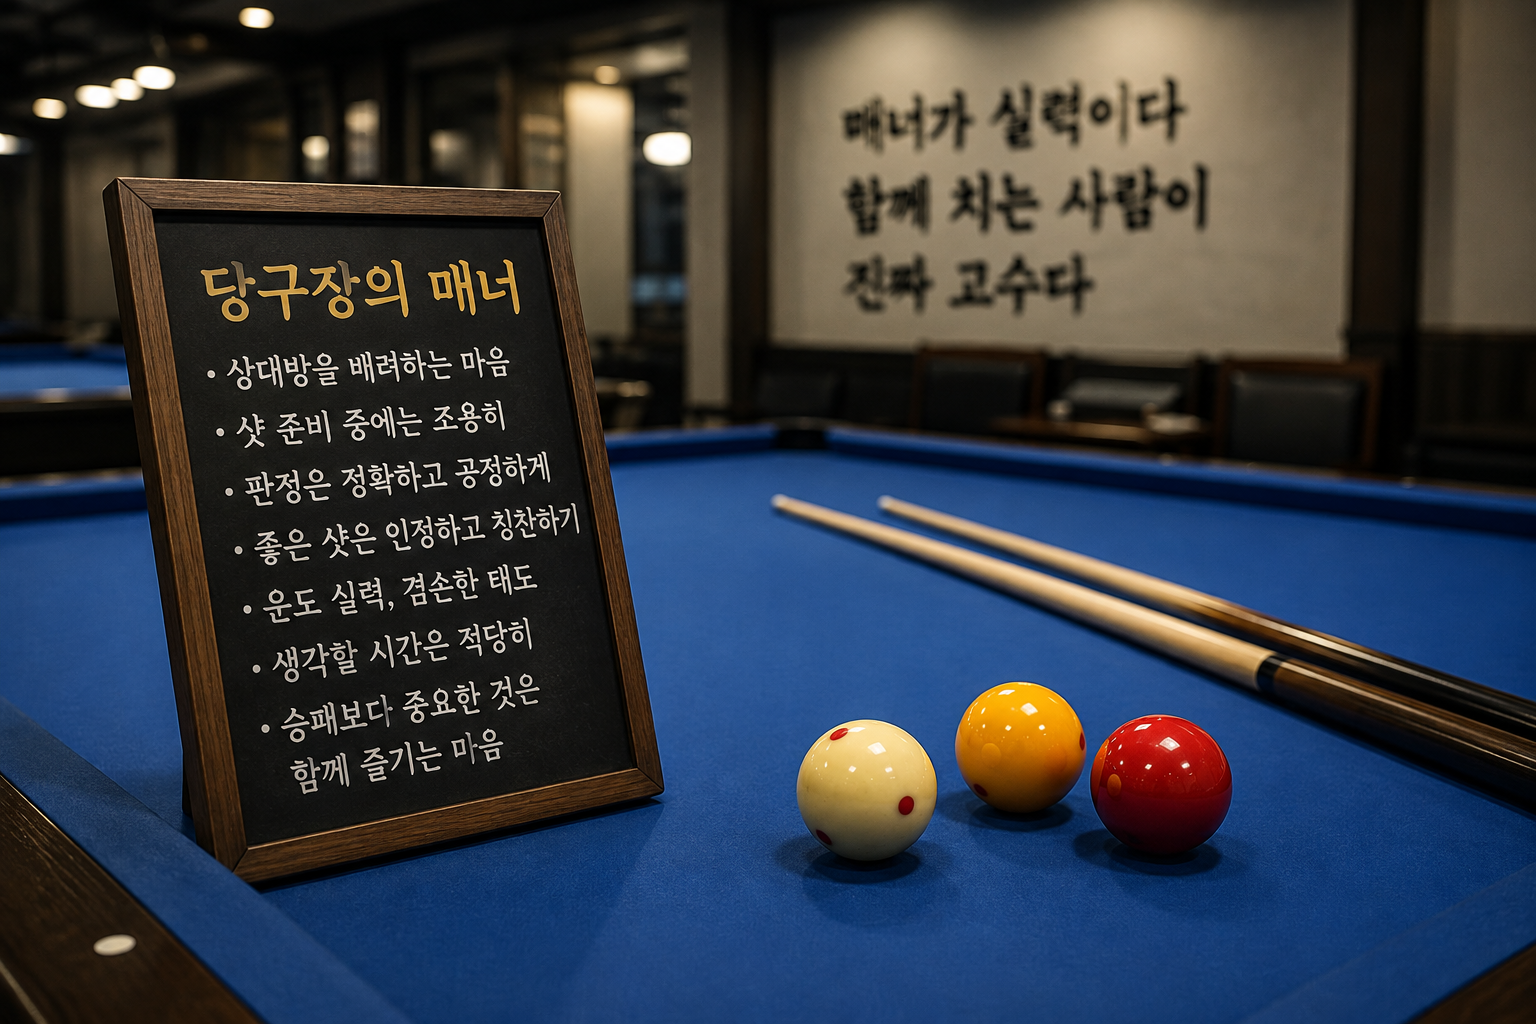 당구장의 매너
• 상대방을 배려하는 마음
• 샷 준비 중에는 조용히
• 판정은 정확하고 공정하게
• 좋은 샷은 인정하고 칭찬하기
• 운도 실력, 겸손한 태도
• 생각할 시간은 적당히
• 승패보다 중요한 것은
함께 즐기는 마음
매너가 실력이다
함께 치는 사람이
진짜 고수다